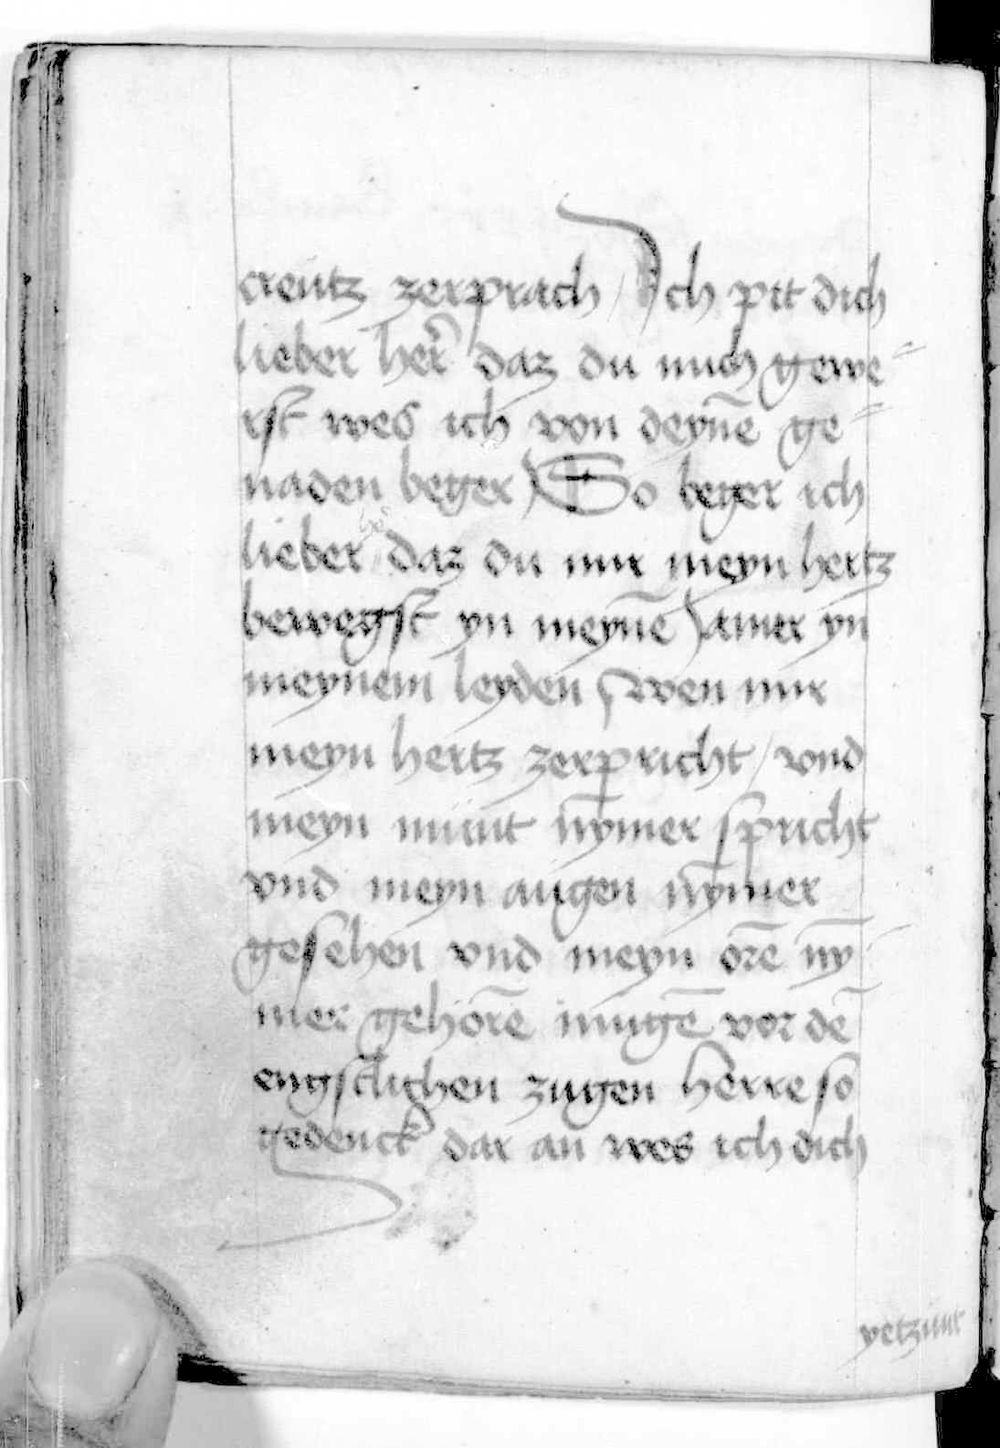 creutz zerprach / Ich pit dich
lieber her̃ daz du mich gewe=
rst wes ich von deyne͂ ge=
naden beger / So beger ich
lieber he͂ daz du mir meyn hertz
bewegst yn meyne͂ / amer yn
meynem leyden / wen mir
meyn hertz zerpricht / vnd
meyn munt ny͂mer spricht
vnd meyn augen ny͂mer
gesehen vnd meyn ore͂ ny͂=
mer gehore͂ muge͂ vor de͂
engstlichen zugen herre so
gedenck dar an wes ich dich
yetzunt